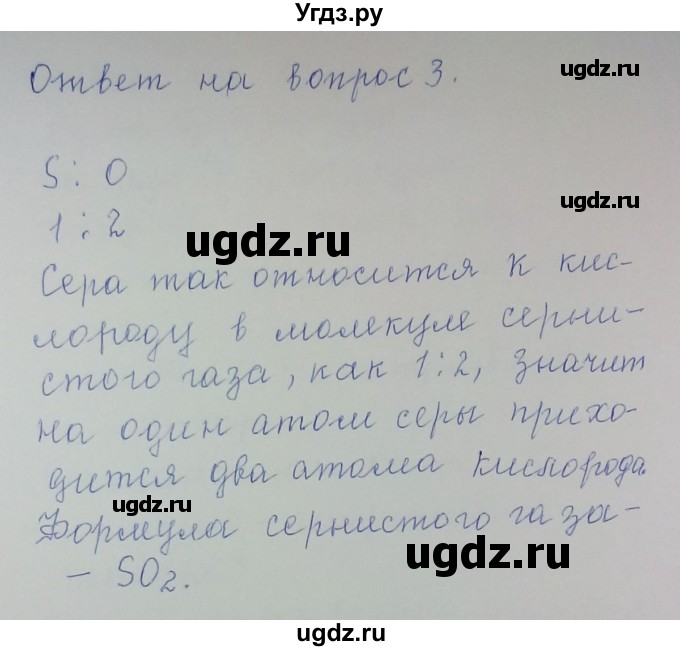 Угдз.ру
Ответ на вопрос 3.
ugdz.ru
S : O
ugdz.ru
1 : 2
ugdz.ru
Сера так относится к кис-
лороду в молекуле серни-
стого газа, как 1:2, значит
на один атом серы прихо-
дится два атома кислорода.
ugdz.ru
Формула сернистого газа-
ugdz.ru
- SO2.
ugdz.ru